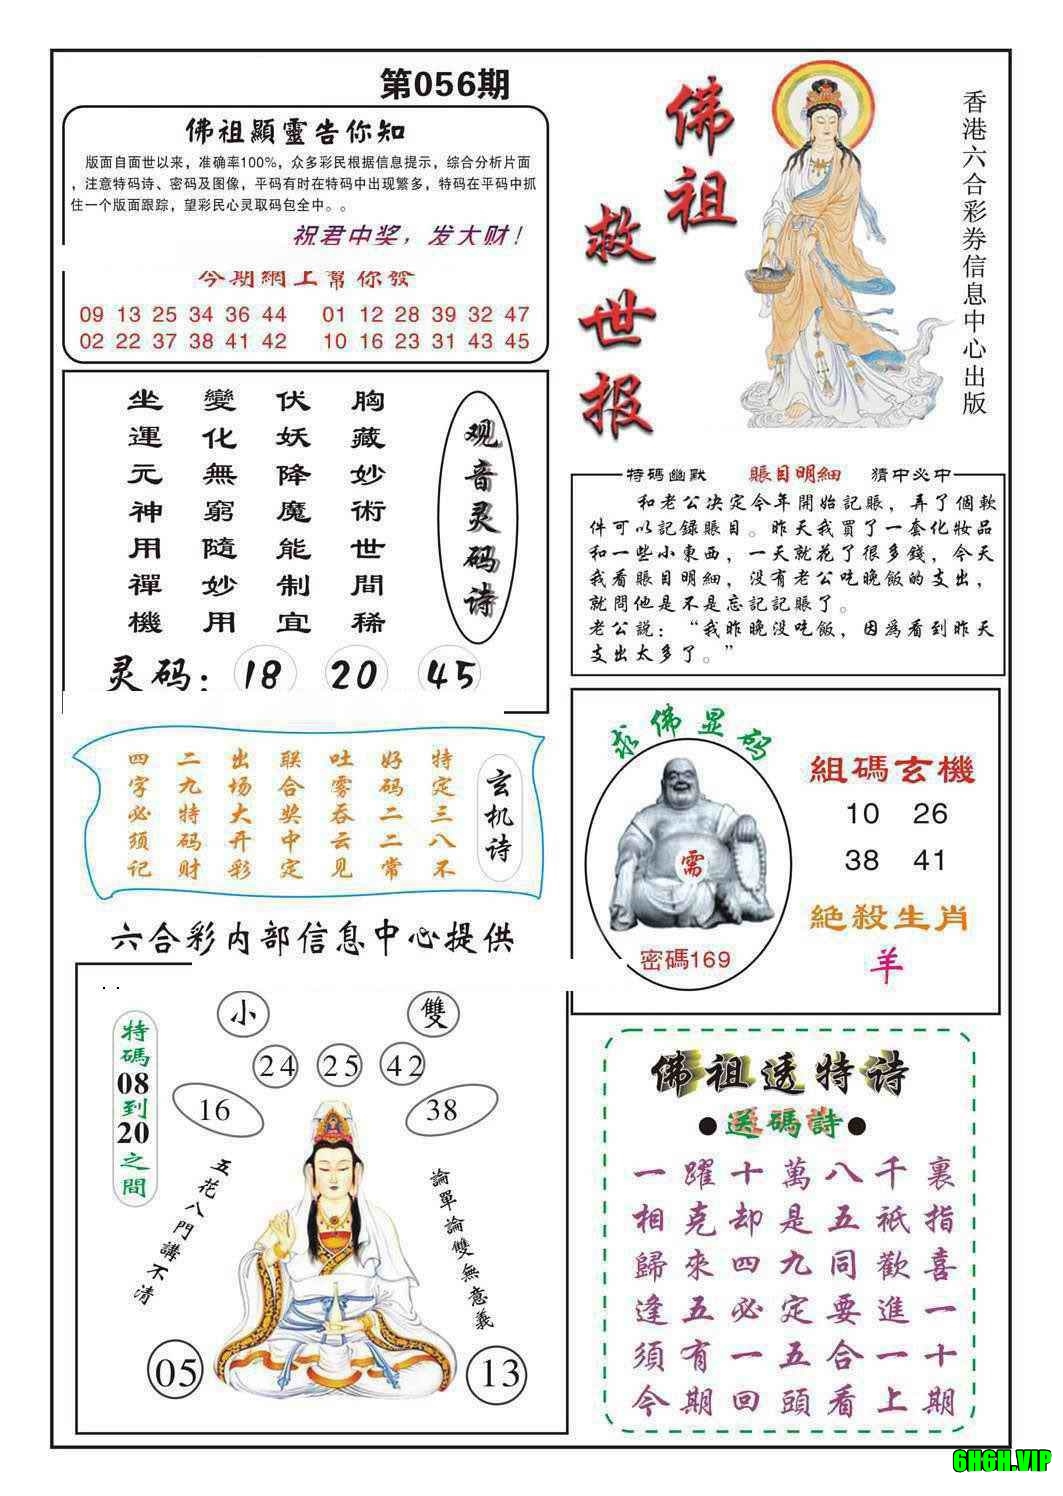 第056期
佛祖顯靈告你知
版面自面世以来，准确率100%，众多彩民根据信息提示，综合分析片面
，注意特码诗、密码及图像，平码有时在特码中出现繁多，特码在平码中抓
住一个版面跟踪，望彩民心灵取码包全中。。
祝君中奖，发大财！
今期網上幫你發
09 13 25 34 36 44 01 12 28 39 32 47
02 22 37 38 41 42 10 16 23 31 43 45
佛祖
救世报
香港六合彩券信息中心出版
观音灵码诗
胸藏妙術世間稀
伏妖降魔能制宜
變化無窮隨妙用
坐運元神用禪機
灵码：18 20 45
特碼幽默 賬目明細 猜中必中
和老公决定今年開始記賬，弄了個軟
件可以記録賬目。昨天我買了一套化妝品
和一些小東西，一天就花了很多錢，今天
我看賬目明細，没有老公吃晚飯的支出，
就問他是不是忘記記賬了。
老公説：“我昨晚没吃飯，因爲看到昨天
支出太多了。”
玄机诗
特定三八不
好码二二常
吐雾吞云见
联合奖中定
出场大开彩
二九特码财
四字必须记
求佛显码
需
密碼169
組碼玄機
10 26
38 41
絶殺生肖
羊
六合彩内部信息中心提供
特碼08到20之間
小 雙
24 25 42
16 38
五花八門講不清
論單論雙無意義
05 13
佛祖透特诗
●送碼詩●
一躍十萬八千裏
相克却是五祇指
歸來四九同歡喜
逢五必定要進一
須有一五合一十
今期回頭看上期
6H6H.VIP